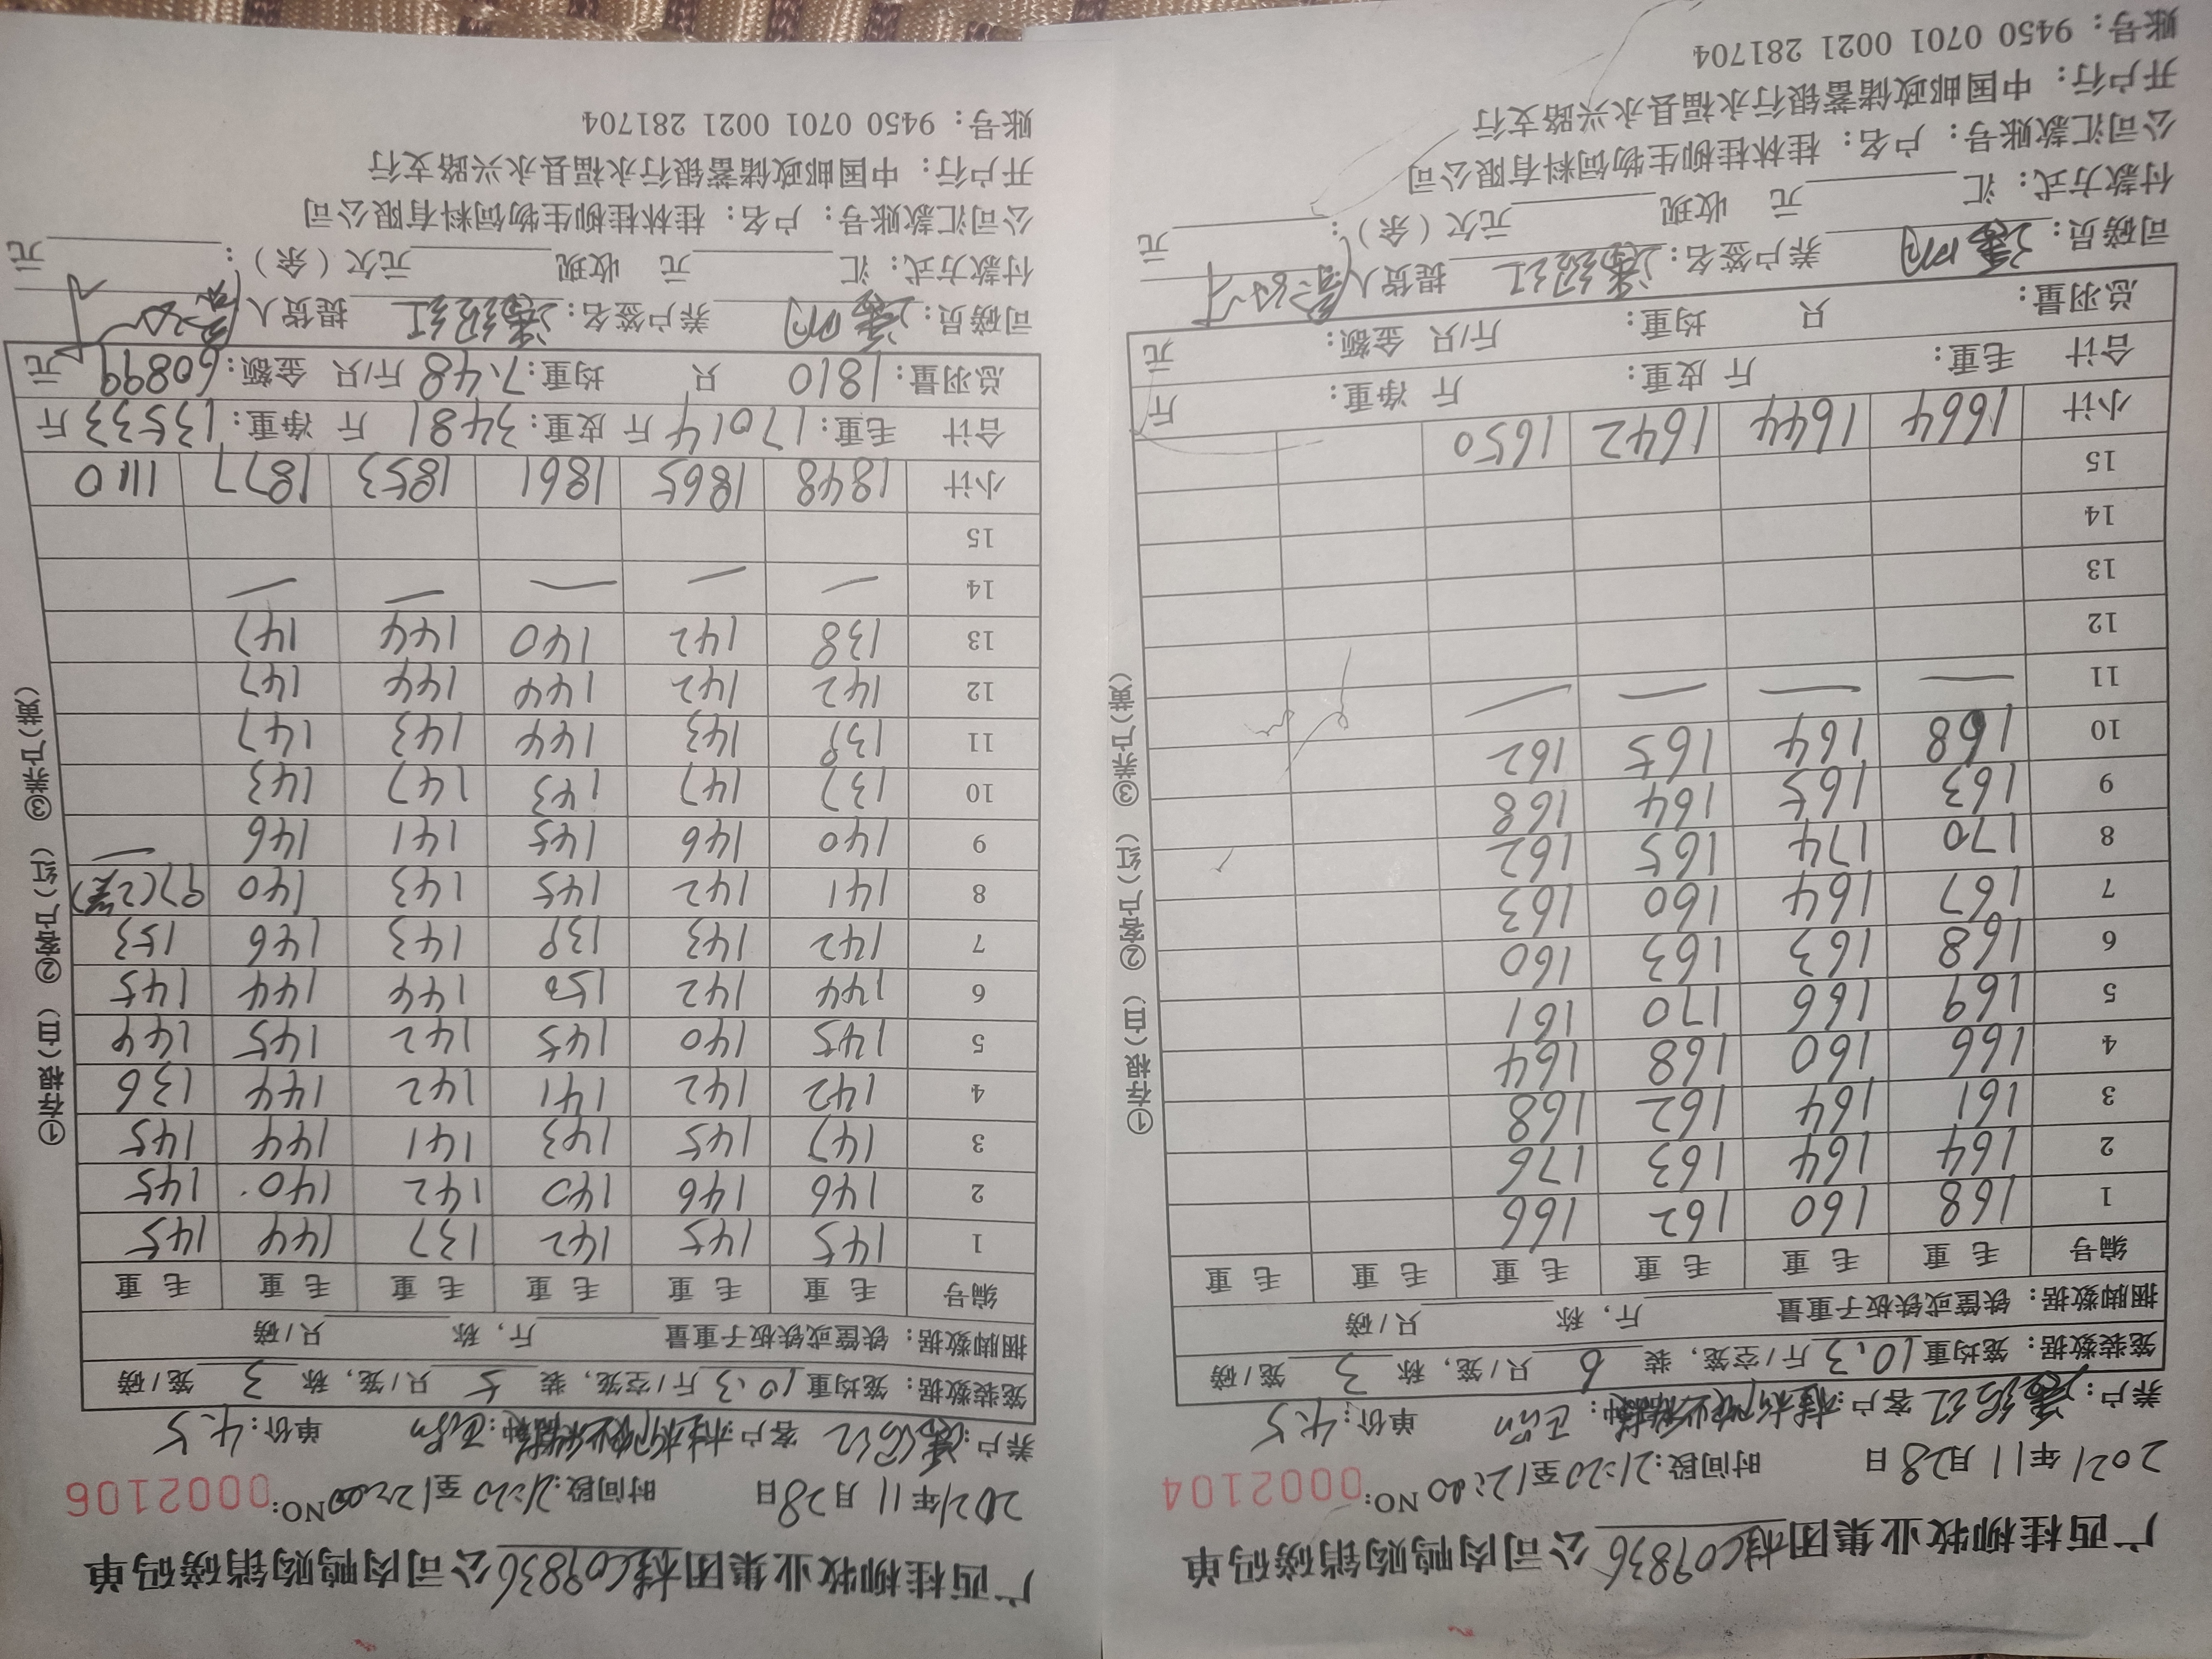 广西桂柳牧业集团桂C09836公司肉鸭购销磅码单
2021年11月28日 时间段:21:20至12:00 NO:0002104
养户: 客户: 种: 单价:4.5
笼装数据: 笼均重10.3斤/空笼, 装6只/笼, 称3笼/磅
捆脚数据: 铁筐或铁板子重量 斤, 称 只/磅
编号 毛重 毛重 毛重 毛重 毛重 毛重
1 168 160 162 166
2 164 164 163 176
3 161 164 162 168
4 166 160 168 164
5 169 166 170 161
6 168 163 163 160
7 167 164 160 163
8 170 174 165 162
9 163 165 164 168
10 168 164 165 162
11
12
13
14
15
小计 1664 1644 1642 1650
合计 毛重: 斤 皮重: 斤 净重: 斤
总羽量: 只 均重: 斤/只 金额: 元
司磅员: 养户签名: 提货人
付款方式: 汇 元 收现 元欠(余): 元
公司汇款账号: 户名: 桂林桂柳生物饲料有限公司
开户行: 中国邮政储蓄银行永福县永兴路支行
账号: 9450 0701 0021 281704
①存根(白) ②客户(红) ③养户(黄)
广西桂柳牧业集团桂C09836公司肉鸭购销磅码单
2021年11月28日 时间段:21:20至12:00 NO:0002106
养户: 客户: 种: 单价:4.5
笼装数据: 笼均重10.3斤/空笼, 装5只/笼, 称3笼/磅
捆脚数据: 铁筐或铁板子重量 斤, 称 只/磅
编号 毛重 毛重 毛重 毛重 毛重 毛重
1 145 145 142 137 144 145
2 146 146 140 142 140 145
3 147 145 143 141 144 145
4 142 142 141 142 144 136
5 145 140 145 142 145 144
6 144 142 150 144 144 145
7 142 143 139 143 146 153
8 141 142 145 143 140 97(2笼)
9 140 146 145 141 146
10 137 147 143 147 143
11 139 143 144 143 147
12 142 142 144 144 147
13 138 142 140 144 147
14
15
小计 1848 1865 1861 1853 1877 1110
合计 毛重:17014斤 皮重:3481斤 净重:13533斤
总羽量:1810只 均重:7.48斤/只 金额:60899元
司磅员: 养户签名: 提货人
付款方式: 汇 元 收现 元欠(余): 元
公司汇款账号: 户名: 桂林桂柳生物饲料有限公司
开户行: 中国邮政储蓄银行永福县永兴路支行
账号: 9450 0701 0021 281704
①存根(白) ②客户(红) ③养户(黄)